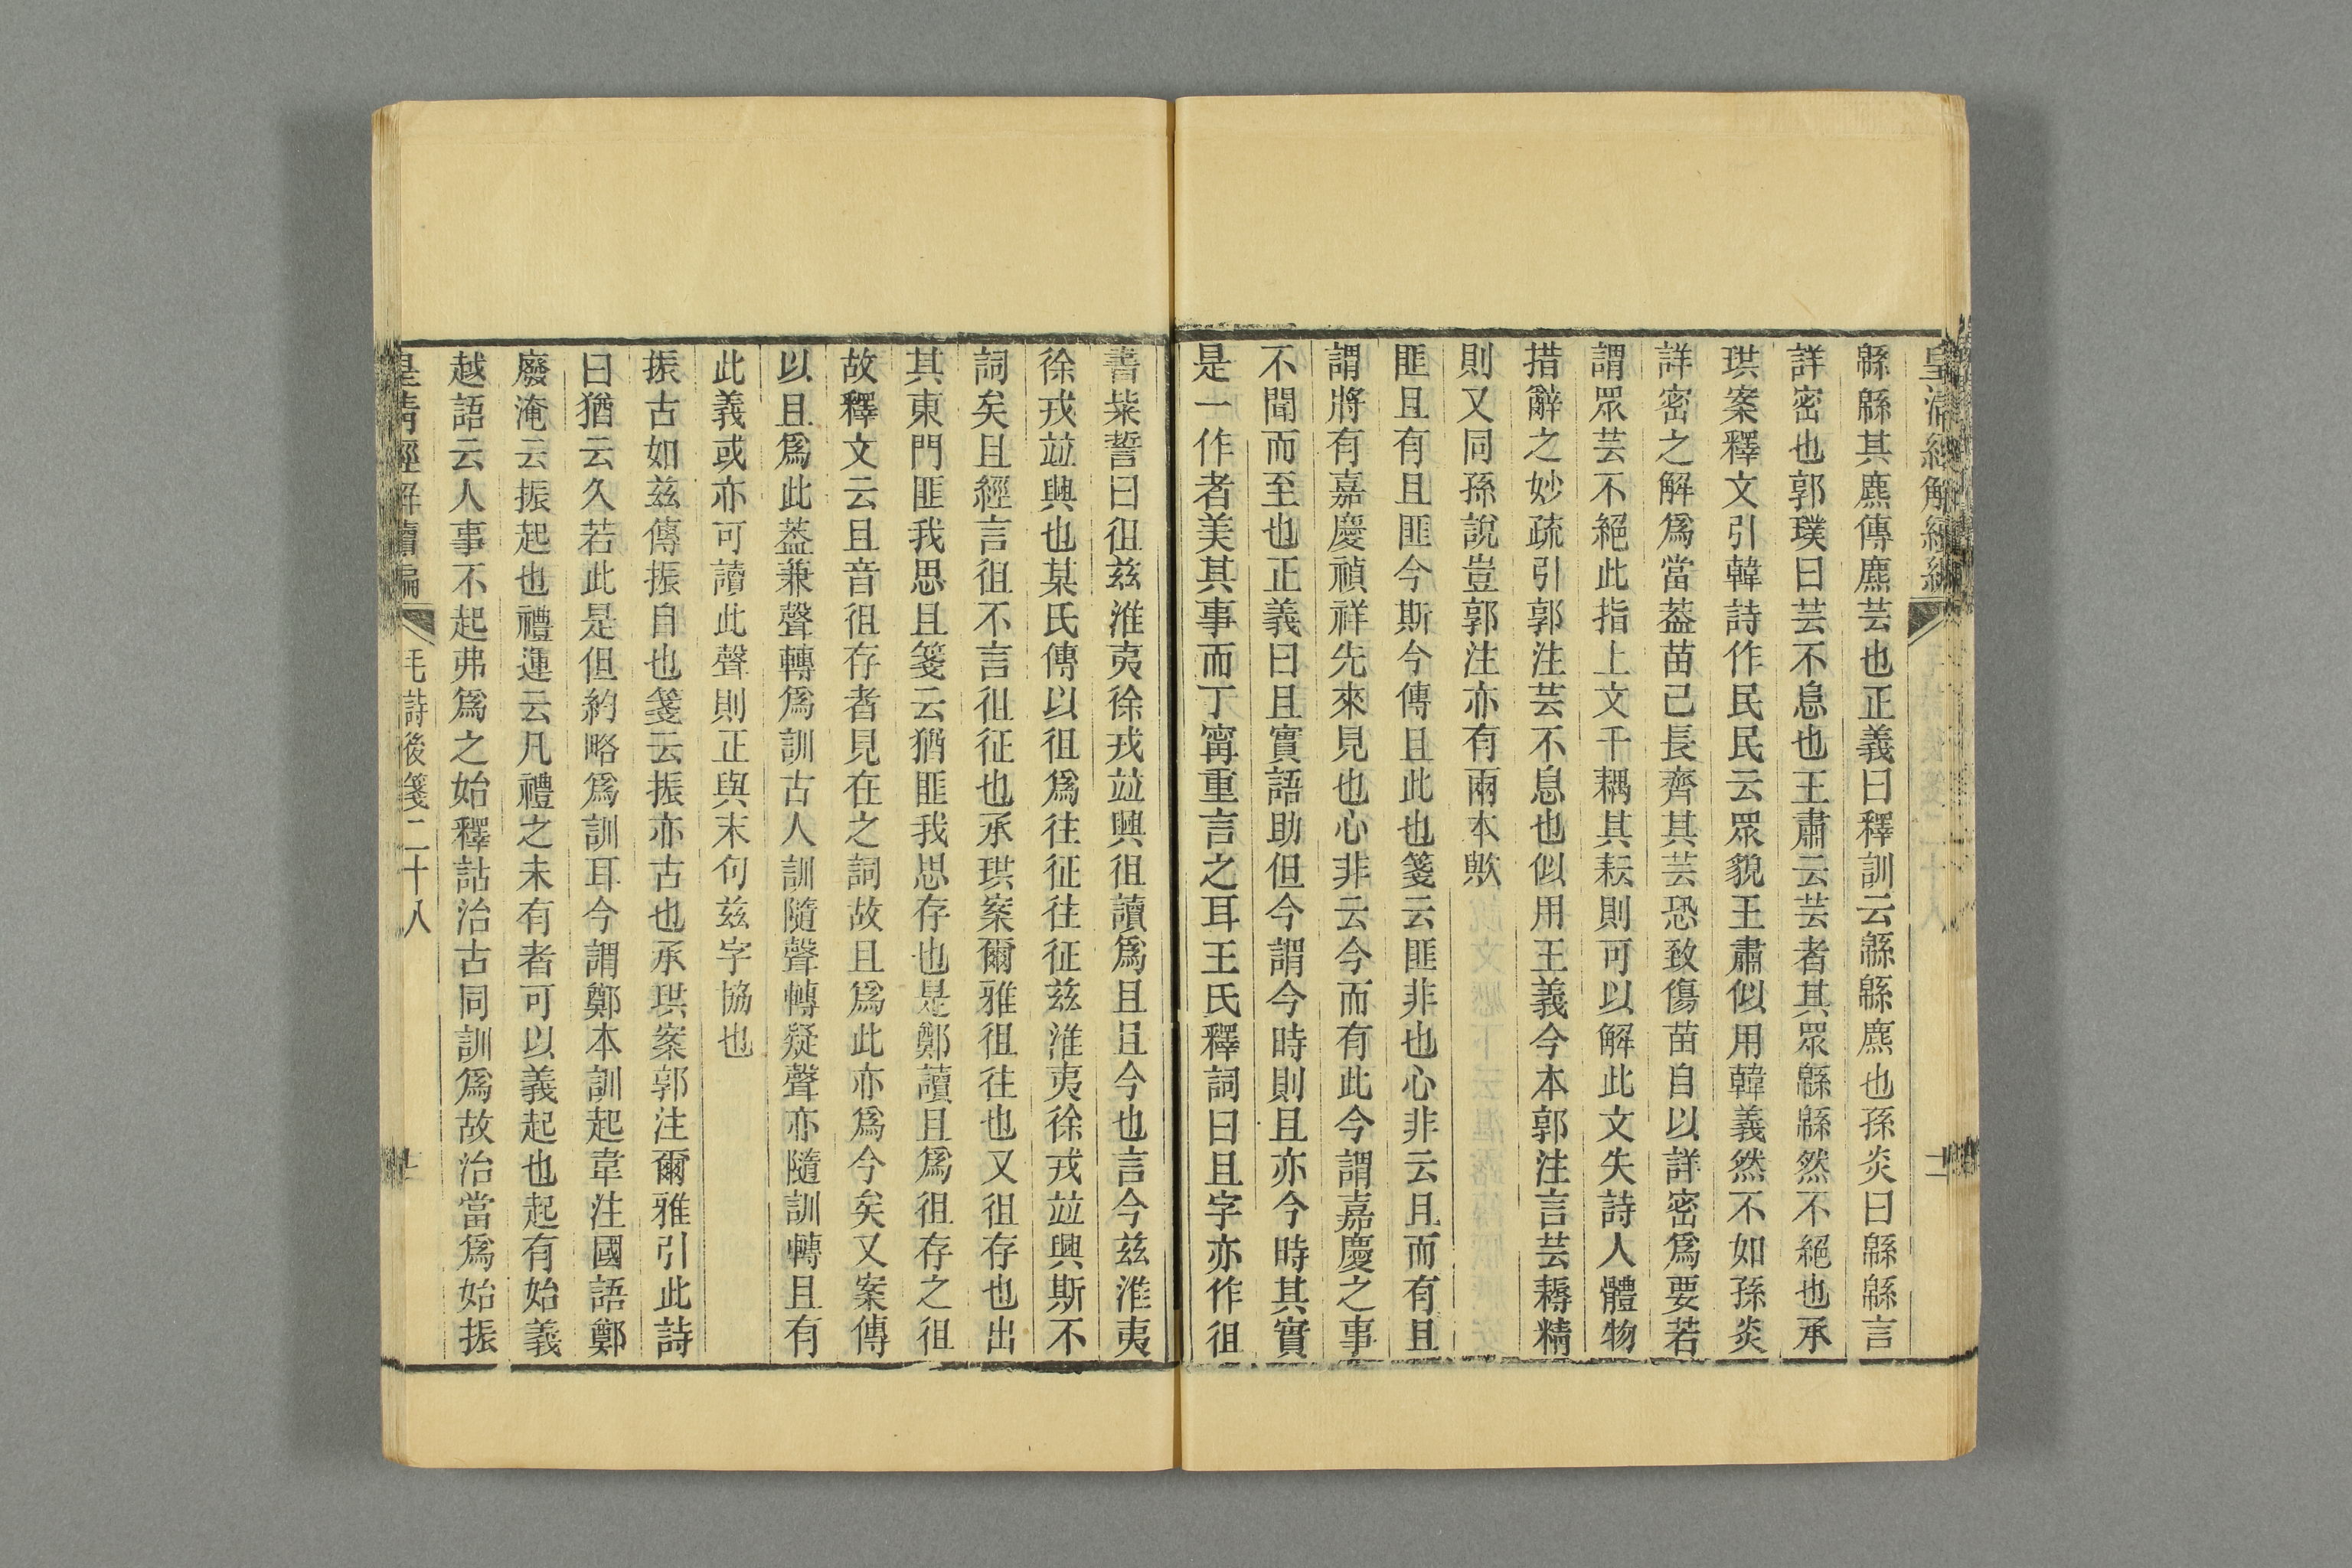 皇清經解續編
緜緜其麃傳麃芸也正義曰釋訓云緜緜麃也孫炎曰緜緜言
詳密也郭璞曰芸不息也王肅云芸者其眾緜緜然不絕也承
珙案釋文引韓詩作民民云眾貌王肅似用韓義然不如孫炎
詳密之解爲當葢苗已長齊其芸恐致傷苗自以詳密爲要若
謂眾芸不絕此指上文千耦其耘則可以解此文失詩人體物
措辭之妙疏引郭注芸不息也似用王義今本郭注言芸耨精
則又同孫說豈郭注亦有兩本歟
匪且有且匪今斯今傳且此也箋云匪非也心非云且而有且
謂將有嘉慶禎祥先來見也心非云今而有此今謂嘉慶之事
不聞而至也正義曰且實語助但今謂今時則且亦今時其實
是一作者美其事而丁甯重言之耳王氏釋詞曰且字亦作徂
書粊誓曰徂茲淮夷徐戎竝興徂讀爲且且今也言今茲淮夷
徐戎竝興也某氏傳以徂爲往征往征茲淮夷徐戎竝興斯不
詞矣且經言徂不言徂征也承珙案爾雅徂往也又徂存也出
其東門匪我思且箋云猶匪我思存也是鄭讀且爲徂存之徂
故釋文云且音徂存者見在之詞故且爲此亦爲今矣又案傳
以且爲此葢兼聲轉爲訓古人訓隨聲轉疑聲亦隨訓轉且有
此義或亦可讀此聲則正與末句茲字協也
振古如茲傳振自也箋云振亦古也承珙案郭注爾雅引此詩
曰猶云久若此是但約略爲訓耳今謂鄭本訓起韋注國語鄭
廢淹云振起也禮運云凡禮之未有者可以義起也起有始義
越語云人事不起弗爲之始釋詁治古同訓爲故治當爲始振
皇清經解續編 毛詩後箋二十八